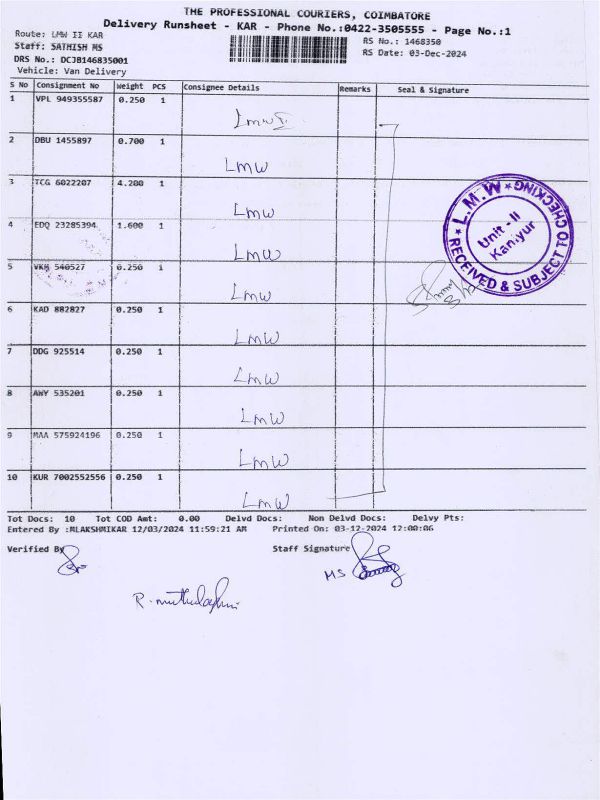 THE PROFESSIONAL COURIERS, COIMBATORE
Delivery Runsheet - KAR - Phone No.:0422-3505555 - Page No.:1
Route: LMW II KAR
RS No.: 1468350
Staff: SATHISH MS
RS Date: 03-Dec-2024
DRS No.: DCJB146835001
Vehicle: Van Delivery
S No Consignment No Weight PCS Consignee Details Remarks Seal & Signature
1 VPL 949355587 0.250 1 Lmw II
2 DBU 1455897 0.700 1 Lmw
3 TCG 6022207 4.200 1 Lmw
4 EDQ 23285394 1.600 1 Lmw
5 VKM 540527 0.250 1 Lmw
6 KAD 882827 0.250 1 Lmw
7 DDG 925514 0.250 1 Lmw
8 AWY 535201 0.250 1 Lmw
9 MAA 575924196 0.250 1 Lmw
10 KUR 7002552556 0.250 1 Lmw
L.M.W ★ RECEIVED & SUBJECT TO CHECKING ★
Unit - II
Kaniyur
Tot Docs: 10 Tot COD Amt: 0.00 Delvd Docs: Non Delvd Docs: Delvy Pts:
Entered By :MLAKSHMIKAR 12/03/2024 11:59:21 AM Printed On: 03-12-2024 12:00:06
Verified By
Staff Signature
MS